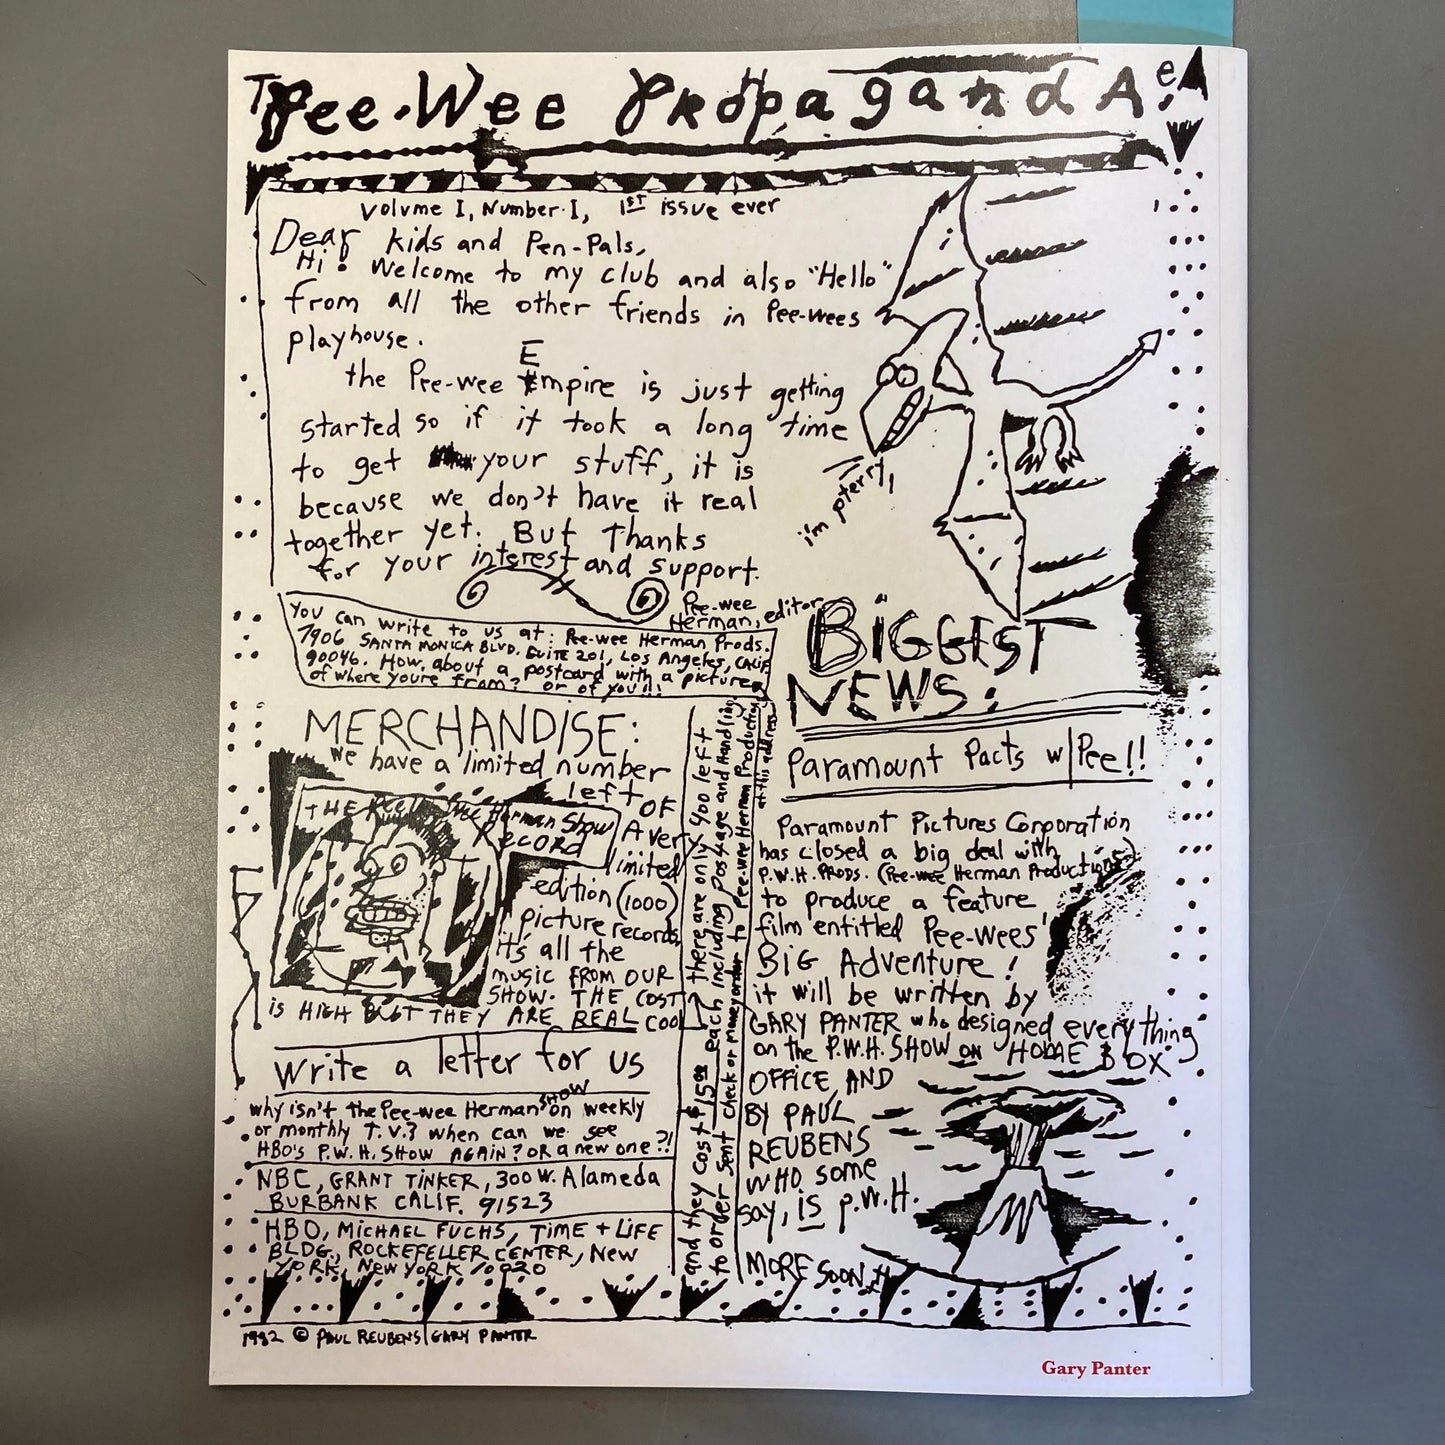 The Pee-Wee Propaganda
Volume I, Number I, 1ST issue ever
Dear kids and Pen-Pals,
Hi! Welcome to my club and also "Hello"
from all the other friends in Pee-wees
playhouse.
the Pee-wee Empire is just getting
started so if it took a long time
to get your stuff, it is
because we don't have it real
together yet. But Thanks
for your interest and support.
Pee-wee
Herman, editor
i'm pterry!
You can write to us at: Pee-wee Herman Prods.
7906 SANTA MONICA BLVD. SUITE 201, LOS Angeles, CALIF.
90046. How about a postcard with a picture
of where youre from? or of you!!!
MERCHANDISE:
we have a limited number
left OF
A very
limited
edition (1000)
picture records
it's all the
music FROM OUR
SHOW. THE COST
is HIGH BUT THEY ARE REAL COOL
THE Pee Wee Herman Show
Record
there are only 400 left
and they cost $15.00 each including postage and handling
to order sent check or money order to Pee-wee Herman Productions
at this address
Write a letter for us
why isn't the Pee-wee Herman SHOW on weekly
or monthly T.V.? when can we see
HBO's P.W.H. SHOW AGAIN? OR a new one?!!
NBC, GRANT TINKER, 300 W. Alameda
BURBANK CALIF. 91523
HBO, MICHAEL FUCHS, TIME + LIFE
BLDG., ROCKEFELLER CENTER, New
YORK, New YORK 10020
BiGGEST
NEWS:
Paramount Pacts w/Pee!!
Paramount Pictures Corporation
has closed a big deal with
P.W.H. PRODS. (Pee-wee Herman Productions)
to produce a feature
film entitled Pee-wees'
BiG Adventure!
it will be written by
GARY PANTER who designed everything
on the P.W.H. SHOW ON HOME BOX
OFFICE, AND
BY PAUL
REUBENS
WHO some
say, is P.W.H.
MORE SOON
1982 © PAUL REUBENS/GARY PANTER
Gary Panter